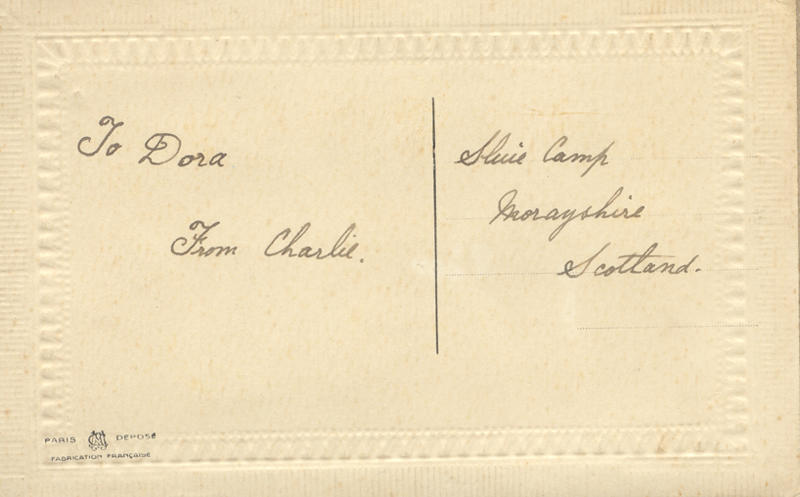 To Dora
From Charlie.
Sluie Camp
Morayshire
Scotland.
PARIS DEPOSÉ
FABRICATION FRANÇAISE